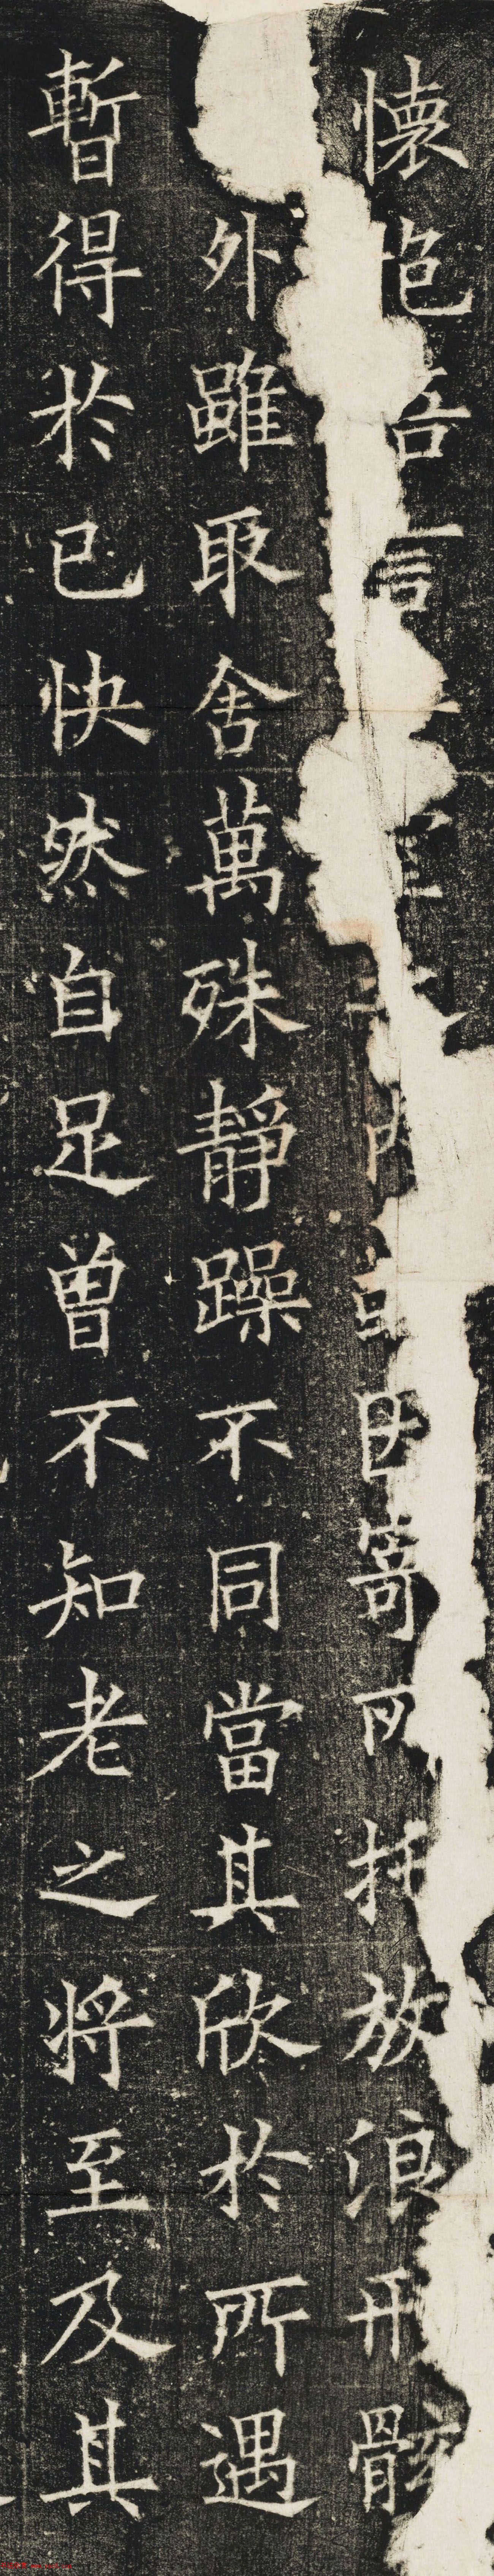 懷抱言因寄所托放浪形骸
外雖取舍萬殊靜躁不同當其欣於所遇
暫得於己快然自足曾不知老之将至及其